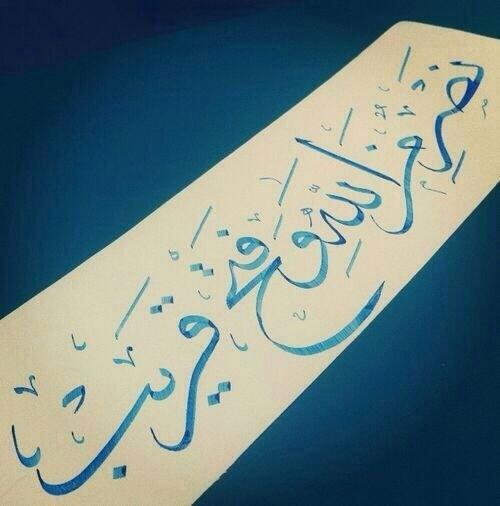 نَصْرٌ مِنَ اللَّهِ وَفَتْحٌ قَرِيبٌ